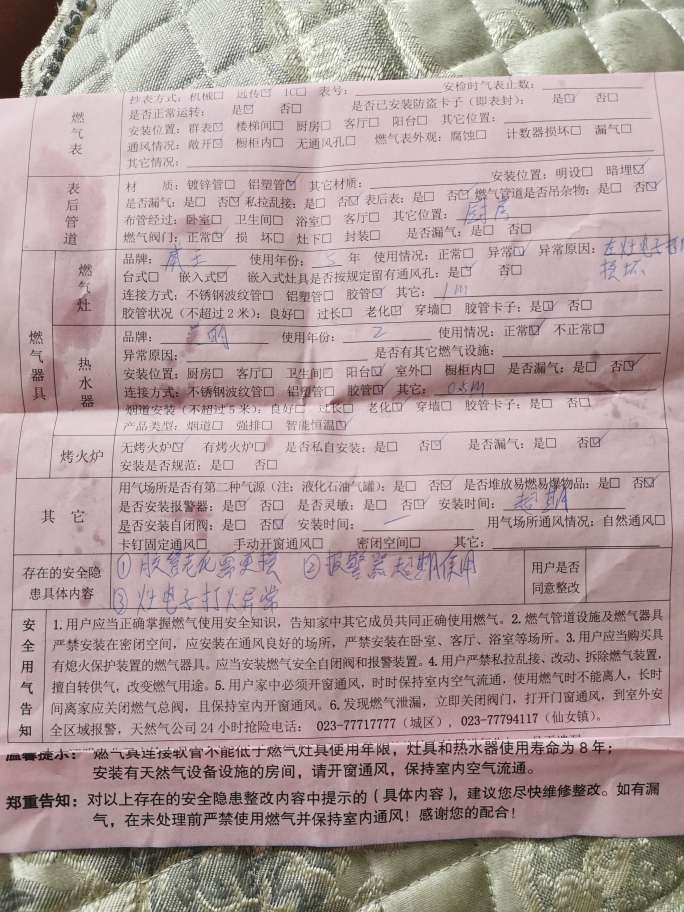 燃气表
抄表方式：机械□ 远传☑ IC□ 表号： 安检时气表止数：
是否正常运转： 是☑ 否□ 是否已安装防盗卡子（即表封）： 是☑ 否□
安装位置：群表☑ 楼梯间□ 厨房□ 客厅□ 阳台□ 其它位置：
通风情况：敞开☑ 橱柜内□ 无通风孔□ 燃气表外观：腐蚀□ 计数器损坏□ 漏气□
其它情况：
表后管道
材 质：镀锌管□ 铝塑管☑ 其它材质： 安装位置：明设□ 暗埋☑
是否漏气：是□ 否☑ 私拉乱接：是□ 否☑ 表后表：是□ 否☑ 燃气管道是否吊杂物：是□ 否☑
布管经过：卧室□ 卫生间□ 浴室□ 客厅□ 其它位置：厨房
燃气阀门：正常☑ 损 坏□ 灶下□ 封装□ 是否漏气：是□ 否□
燃气器具
燃气灶
品牌： 使用年份：5 年 使用情况：正常□ 异常☑ 异常原因：左灶电子打火
损坏
台式□ 嵌入式☑ 嵌入式灶具是否按规定留有通风孔：是☑ 否□
连接方式：不锈钢波纹管□ 铝塑管□ 胶管☑ 其它：1m
胶管状况（不超过2米）：良好□ 过长□ 老化☑ 穿墙□ 胶管卡子：是☑ 否□
热水器
品牌： 使用年份：2 使用情况：正常☑ 不正常□
异常原因： 是否有其它燃气设施：
安装位置：厨房□ 客厅□ 卫生间□ 阳台☑ 室外□ 橱柜内□ 是否漏气：是□ 否☑
连接方式：不锈钢波纹管□ 铝塑管□ 胶管☑ 其它：0.5m
烟道安装（不超过5米）：良好□ 过长□ 老化☑ 穿墙□ 胶管卡子：是□ 否□
产品类型：烟道□ 强排□ 智能恒温☑
烤火炉
无烤火炉☑ 有烤火炉□ 是否私自安装：是□ 否☑ 是否漏气：是□ 否☑
安装是否规范：是□ 否□
其它
用气场所是否有第二种气源（注：液化石油气罐）：是□ 否☑ 是否堆放易燃易爆物品：是□ 否☑
是否安装报警器：是☑ 否□ 是否灵敏：是□ 否☑ 安装时间：超期
是否安装自闭阀：是□ 否☑ 安装时间：一 用气场所通风情况：自然通风□
卡钉固定通风□ 手动开窗通风□ 密闭空间□ 其它：
存在的安全隐
患具体内容
①胶管老化需更换 ②报警器超期使用
③灶电子打火异常
用户是否
同意整改
安全用气告知
1.用户应当正确掌握燃气使用安全知识，告知家中其它成员共同正确使用燃气。2.燃气管道设施及燃气器具
严禁安装在密闭空间，应安装在通风良好的场所，严禁安装在卧室、客厅、浴室等场所。3.用户应当购买具
有熄火保护装置的燃气器具。应当安装燃气安全自闭阀和报警装置。4.用户严禁私拉乱接、改动、拆除燃气装置，
擅自转供气，改变燃气用途。5.用户家中必须开窗通风，时时保持室内空气流通，使用燃气时不能离人，长时
间离家应关闭燃气总阀，且保持室内开窗通风。6.发现燃气泄漏，立即关闭阀门，打开门窗通风，到室外安
全区域报警，天然气公司24小时抢险电话：023-77717777（城区），023-77794117（仙女镇）。
温馨提示：燃气具连接软管不能低于燃气灶具使用年限，灶具和热水器使用寿命为8年；
安装有天然气设备设施的房间，请开窗通风，保持室内空气流通。
郑重告知：对以上存在的安全隐患整改内容中提示的（具体内容），建议您尽快维修整改。如有漏
气，在未处理前严禁使用燃气并保持室内通风！感谢您的配合！